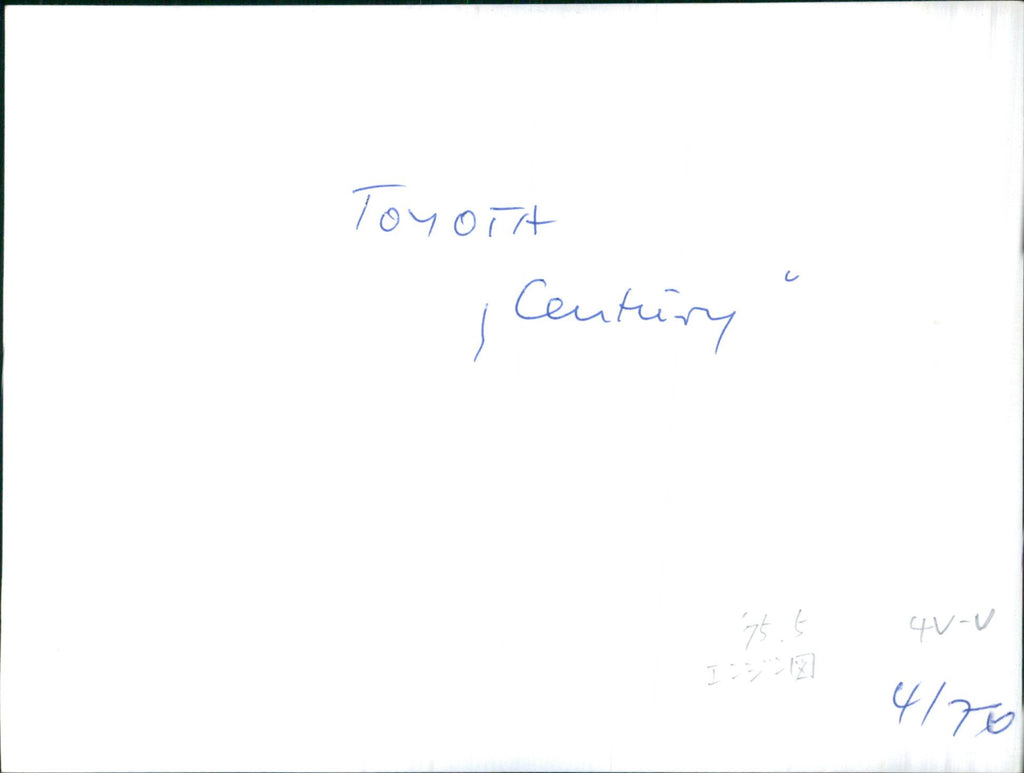 TOYOTA
„Century“
'75.5
エンジン図
4V-V
4/70